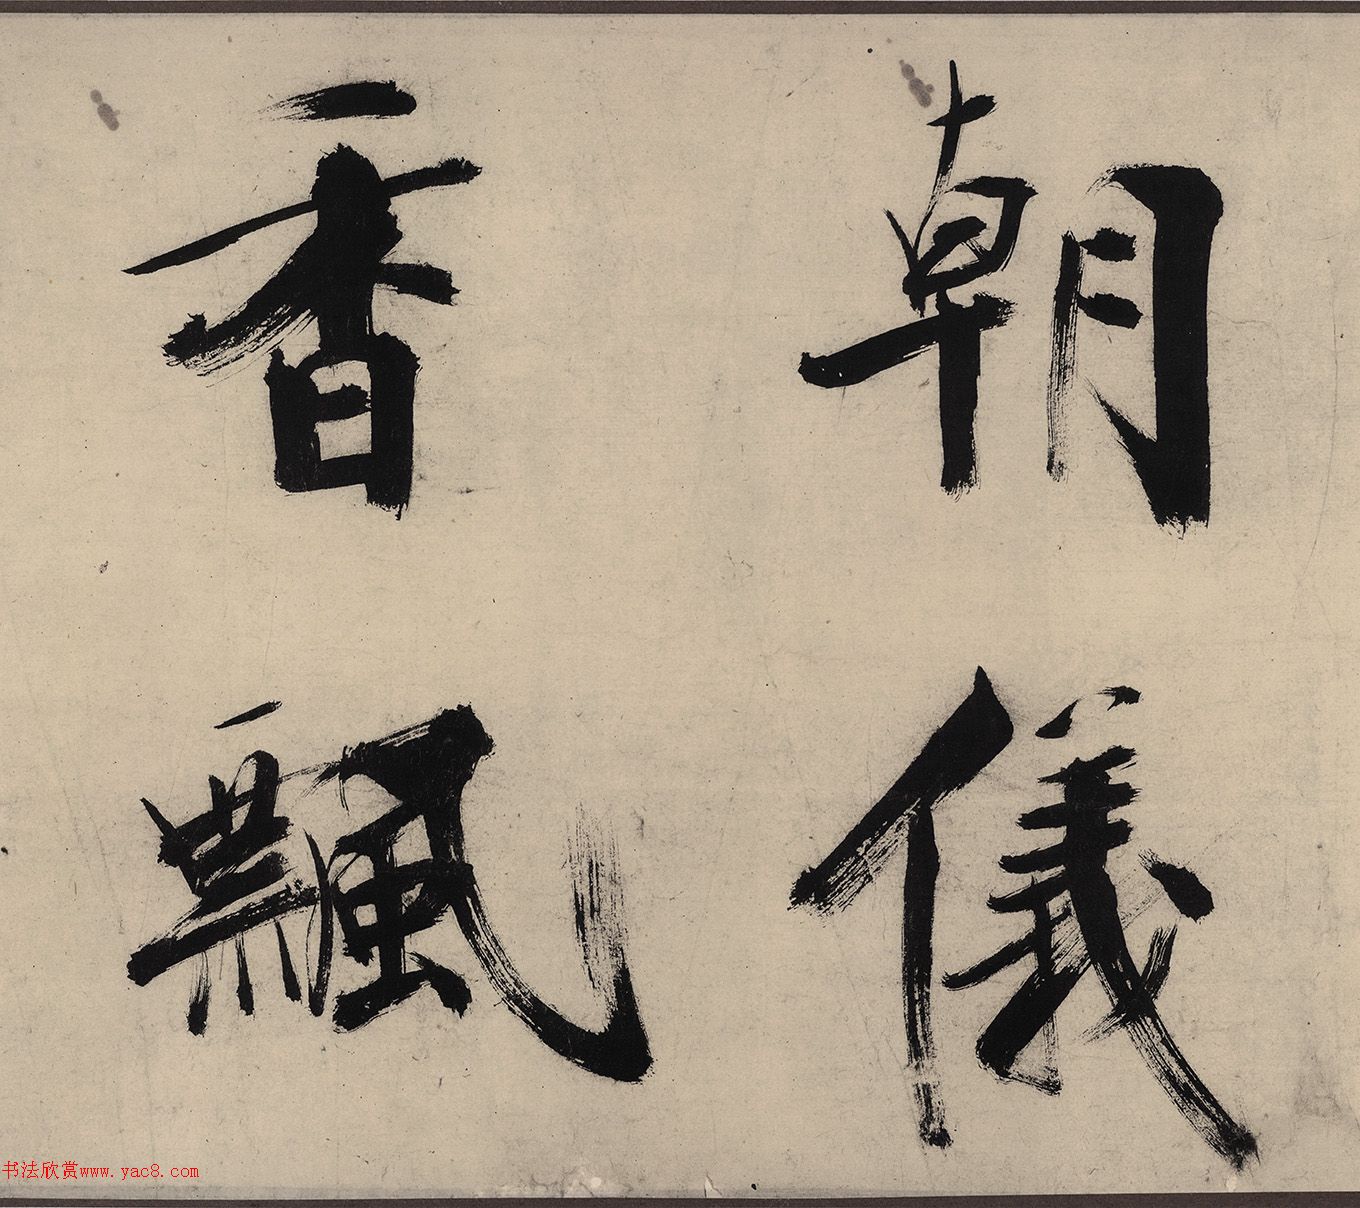 朝儀
香飄
书法欣赏www.yac8.com